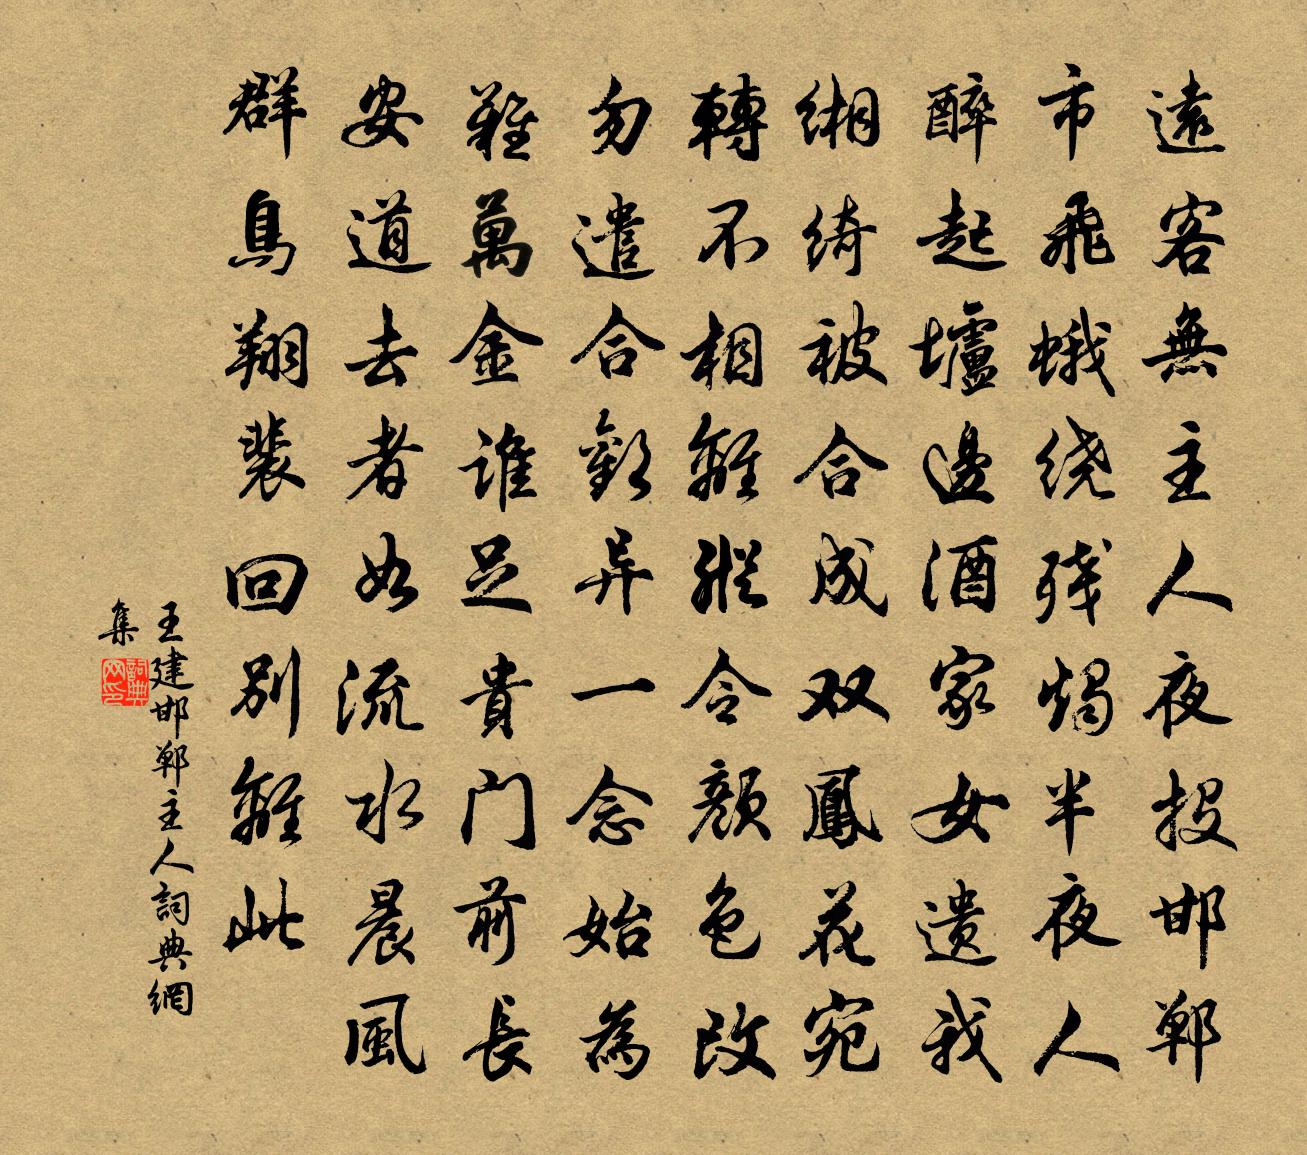 遠客無主人夜投邯鄲
市飛蛾绕残燭半夜人
醉起壚邊酒家女遗我
缃绮被合成双鳳花宛
轉不相離縱令顔色改
勿遣合歡异一念始為
難萬金誰足貴门前長
安道去者如流水晨風
群鳥翔裴回别離此
王建邯鄲主人詞典網
集
詞典网印